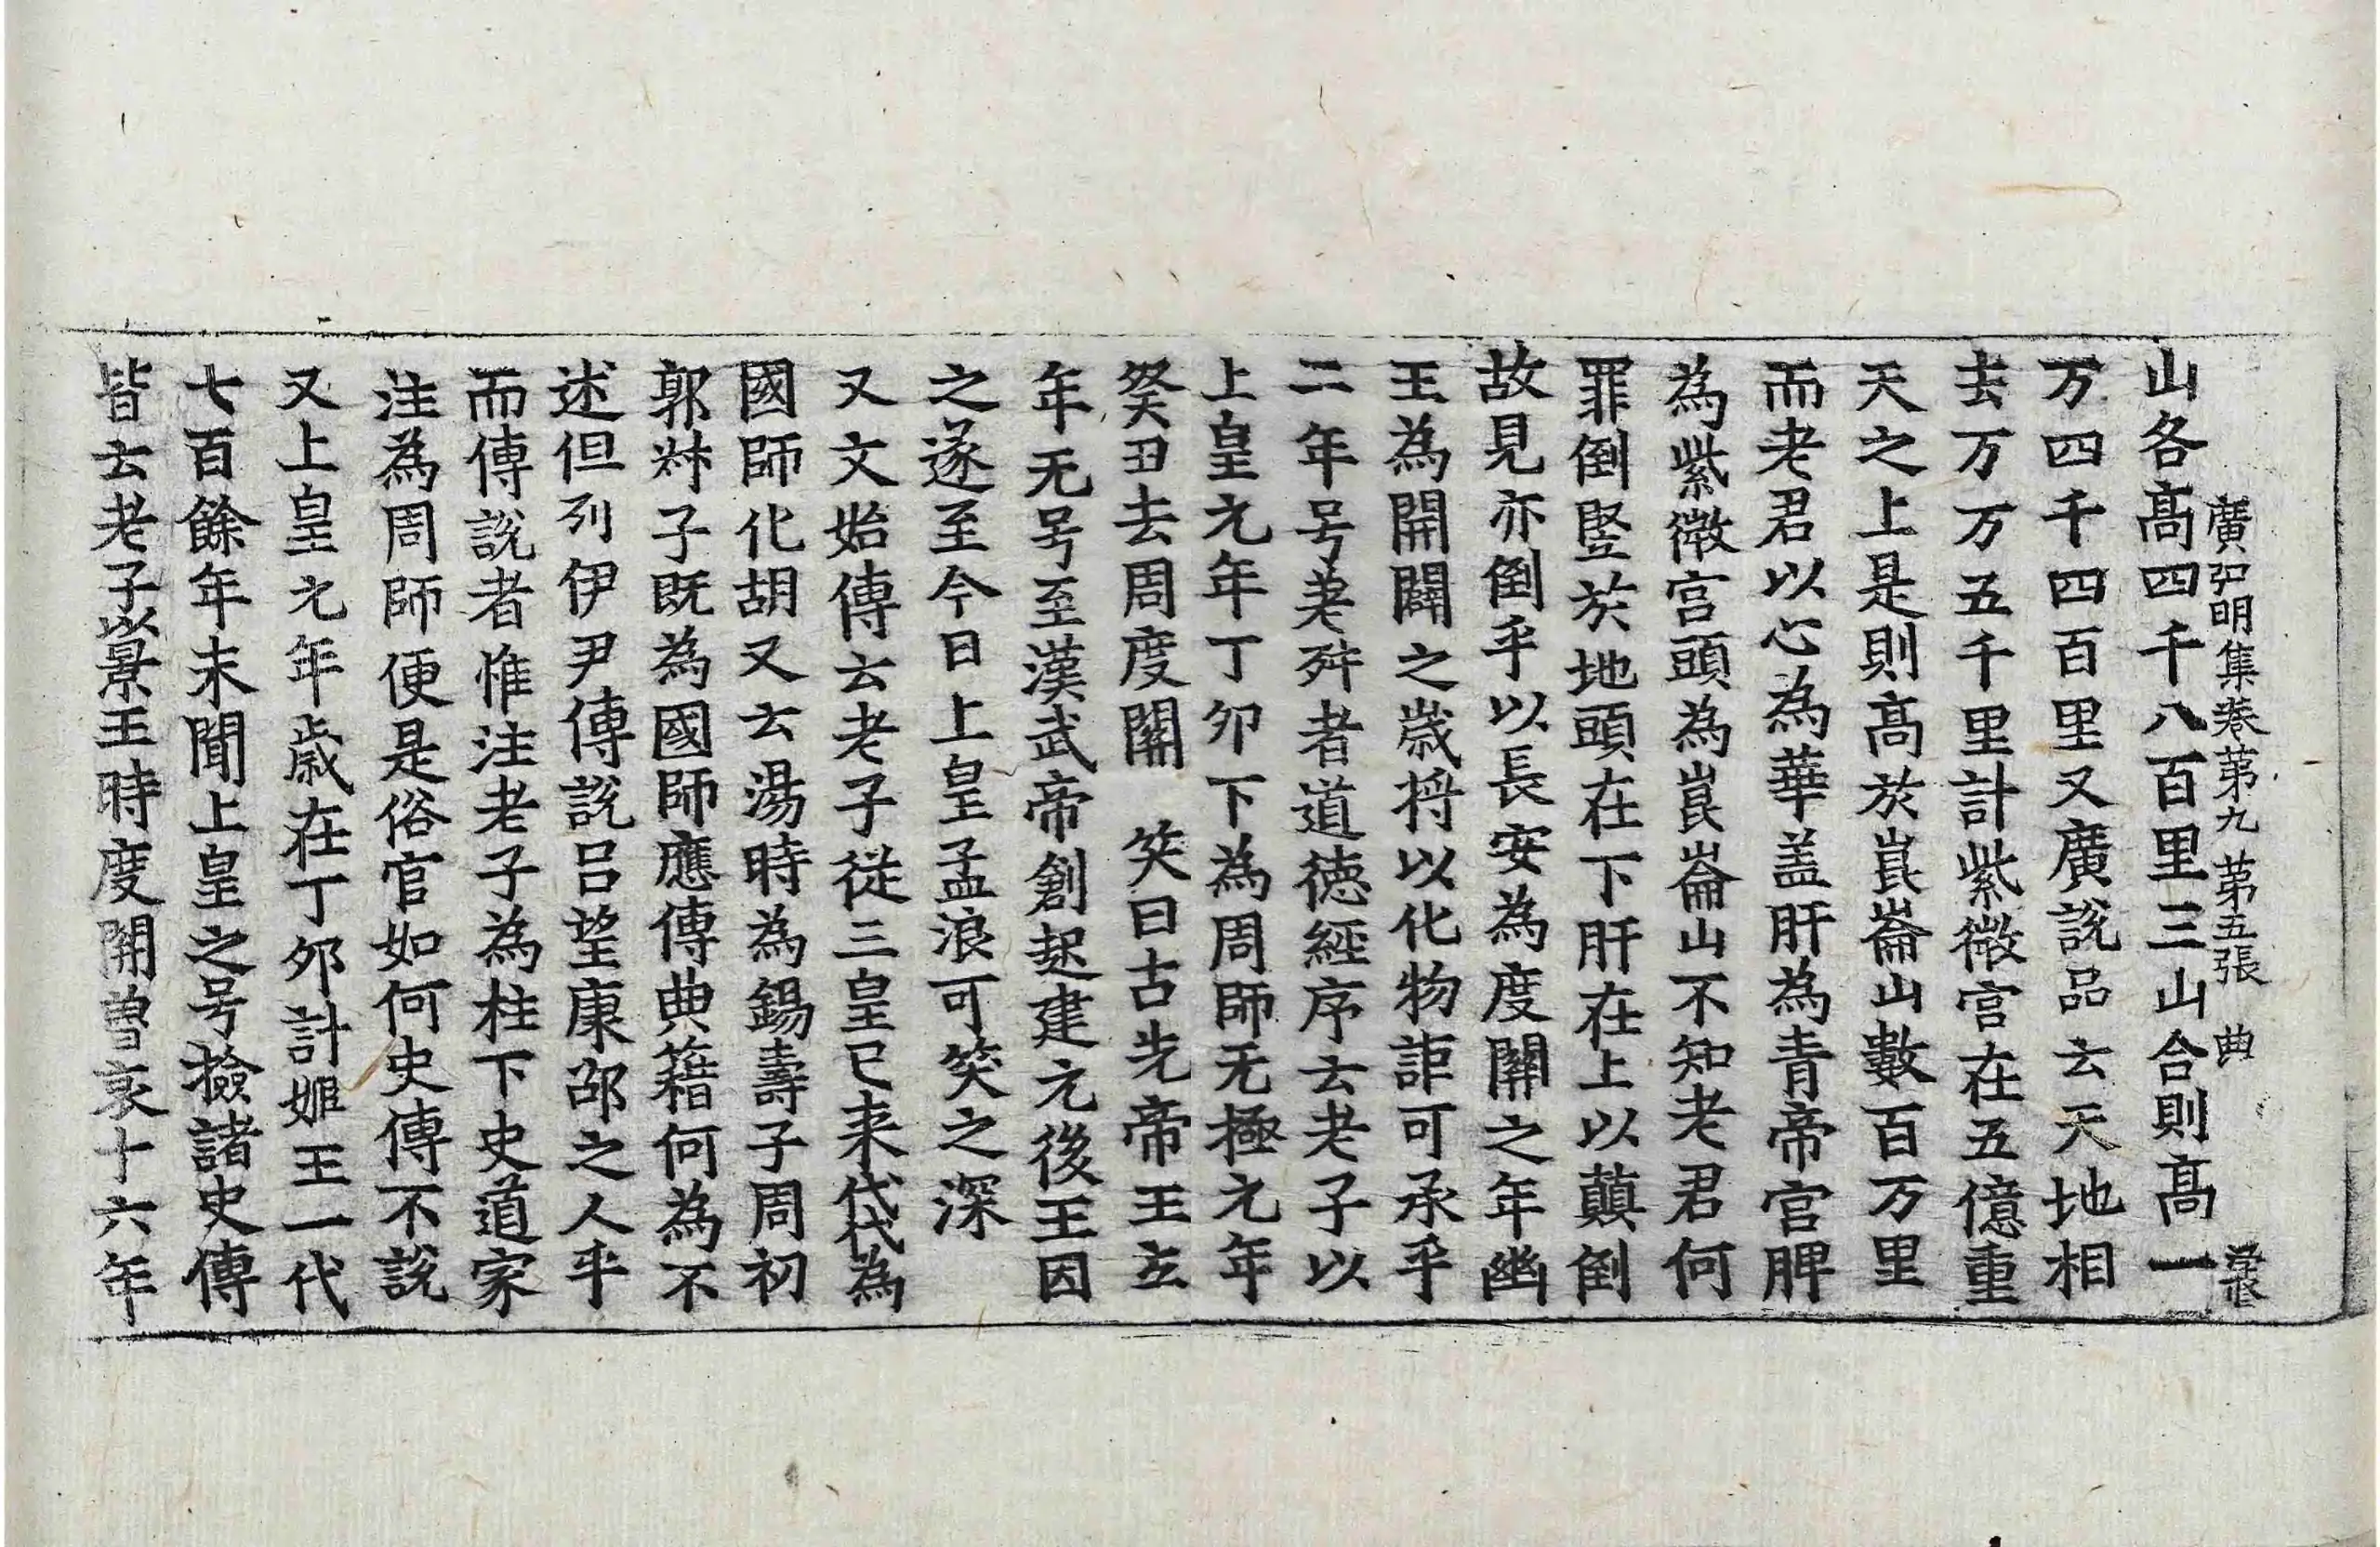 廣弘明集卷第九 第五張 典
山各髙四千八百里三山合則髙一
万四千四百里又廣說品云天地相
去万万五千里計紫微宫在五億重
天之上是則髙於崑崙山數百万里
而老君以心為華盖肝為青帝宫脾
為紫微宫頭為崑崙山不知老君何
罪倒竪於地頭在下肝在上以顛倒
故見亦倒乎以長安為度關之年幽
王為開闢之歲将以化物詎可承乎
二年号差舛者道德經序云老子以
上皇元年丁卯下為周師无極元年
癸丑去周度關 笑曰古先帝王立
年无号至漢武帝創起建元後王因
之遂至今日上皇孟浪可笑之深
又文始傳云老子從三皇已来代代為
國師化胡又云湯時為錫壽子周初
郭叔子既為國師應傳典籍何為不
述但列伊尹傅說吕望康邵之人乎
而傳說者惟注老子為柱下史道家
注為周師便是俗官如何史傳不說
又上皇元年歲在丁卯計姬王一代
七百餘年未聞上皇之号撿諸史傳
皆云老子以景王時度關曽哀十六年